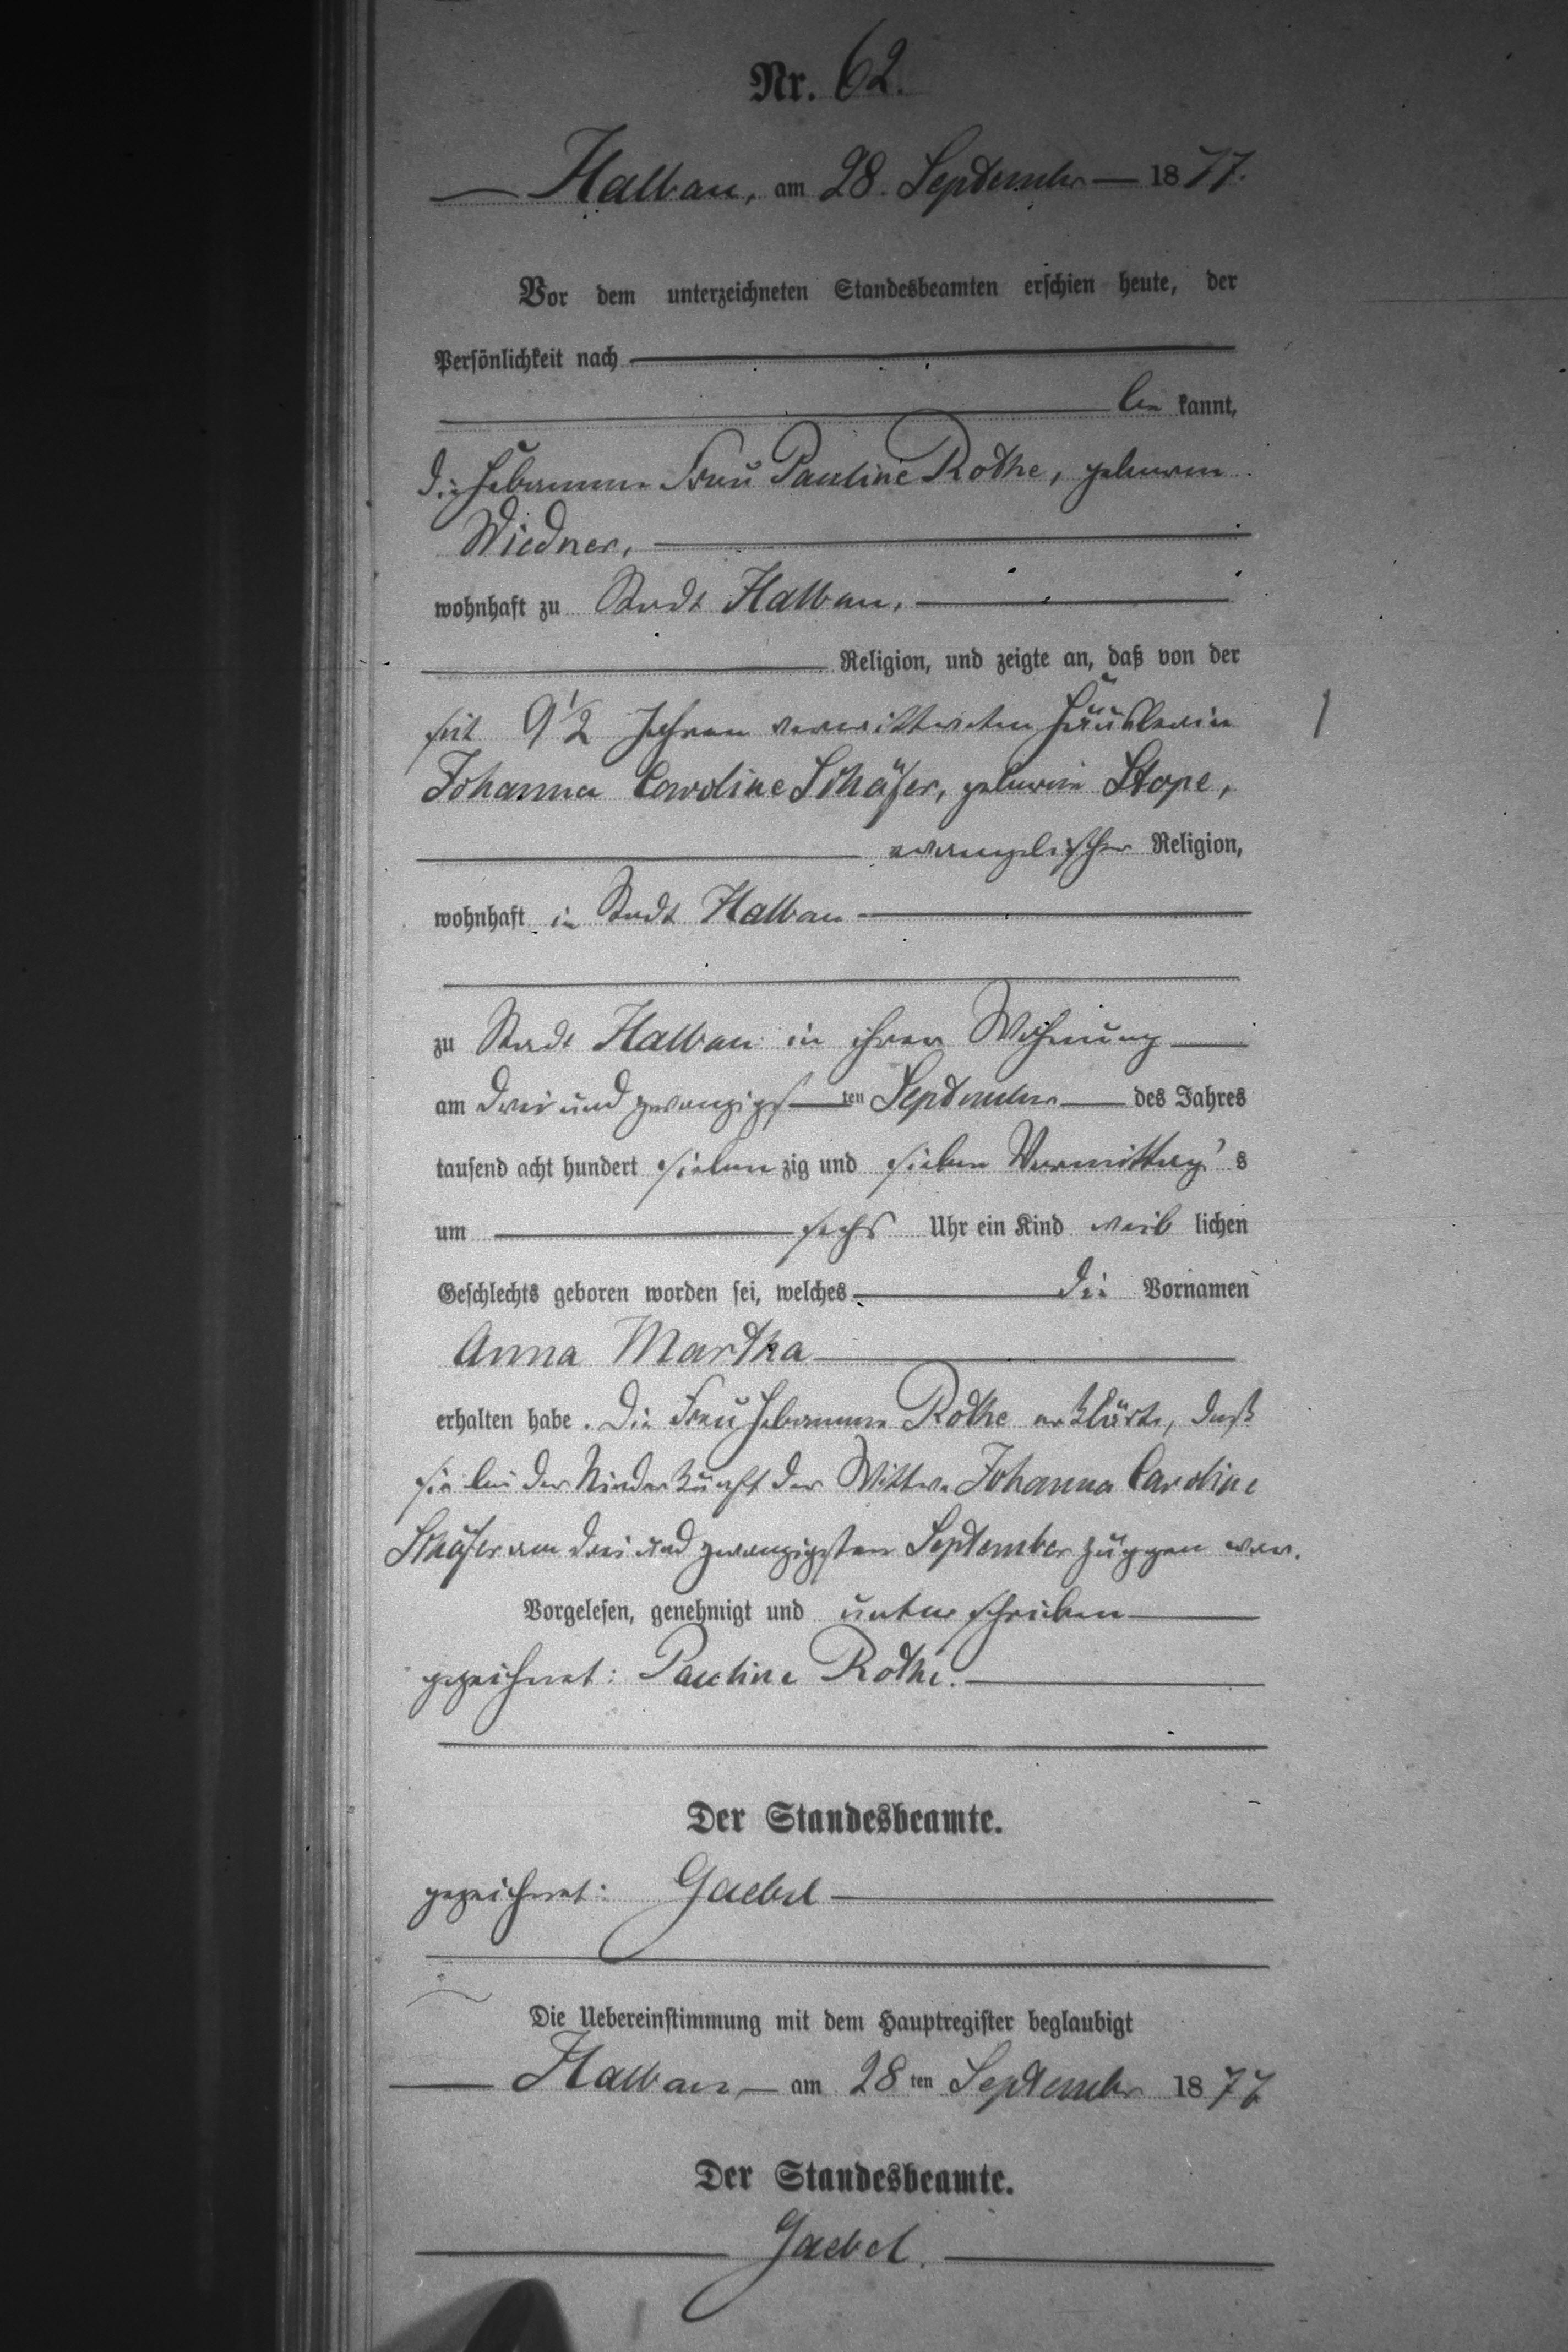 Nr. 62.
Halbau, am 28. September 1877.
Vor dem unterzeichneten Standesbeamten erschien heute, der
Persönlichkeit nach
be kannt,
die Hebamme Frau Pauline Rothe, geborene
Wiedner,
wohnhaft zu Stadt Halbau,
Religion, und zeigte an, daß von der
seit 9 1/2 Jahren verwittweten Häuslerin
Johanna Caroline Schäfer, geborene Stope,
evangelischer Religion,
wohnhaft in Stadt Halbau
zu Stadt Halbau in ihrer Wohnung
am drei und zwanzigsten September des Jahres
tausend acht hundert sieben zig und sieben Vormittag's
um sechs Uhr ein Kind weib lichen
Geschlechts geboren worden sei, welches die Vornamen
Anna Martha
erhalten habe. Die Frau Hebamme Rothe erklärte, daß
sie bei der Niederkunft der Wittwe Johanna Caroline
Schäfer am drei und zwanzigsten September zugegen war.
Vorgelesen, genehmigt und unterschrieben
gezeichnet: Pauline Rothe.
Der Standesbeamte.
gezeichnet: Gaebel
Die Uebereinstimmung mit dem Hauptregister beglaubigt
Halbau, am 28ten September 1877
Der Standesbeamte.
Gaebel.